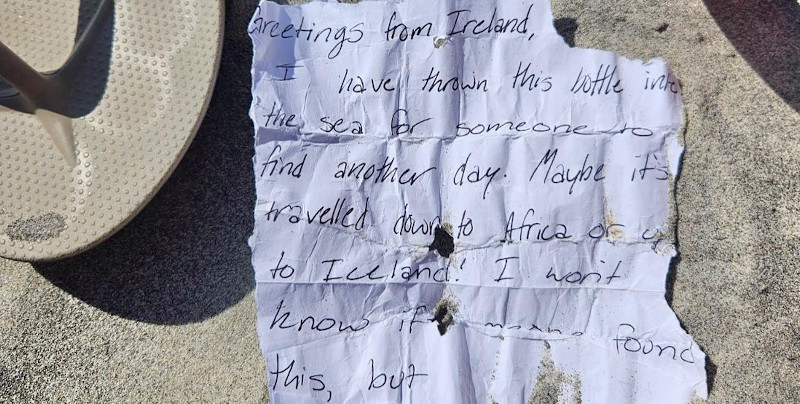 Greetings from Ireland,
I have thrown this bottle into
the sea for someone to
find another day. Maybe it's
travelled down to Africa or
to Iceland! I won't
know if found
this, but